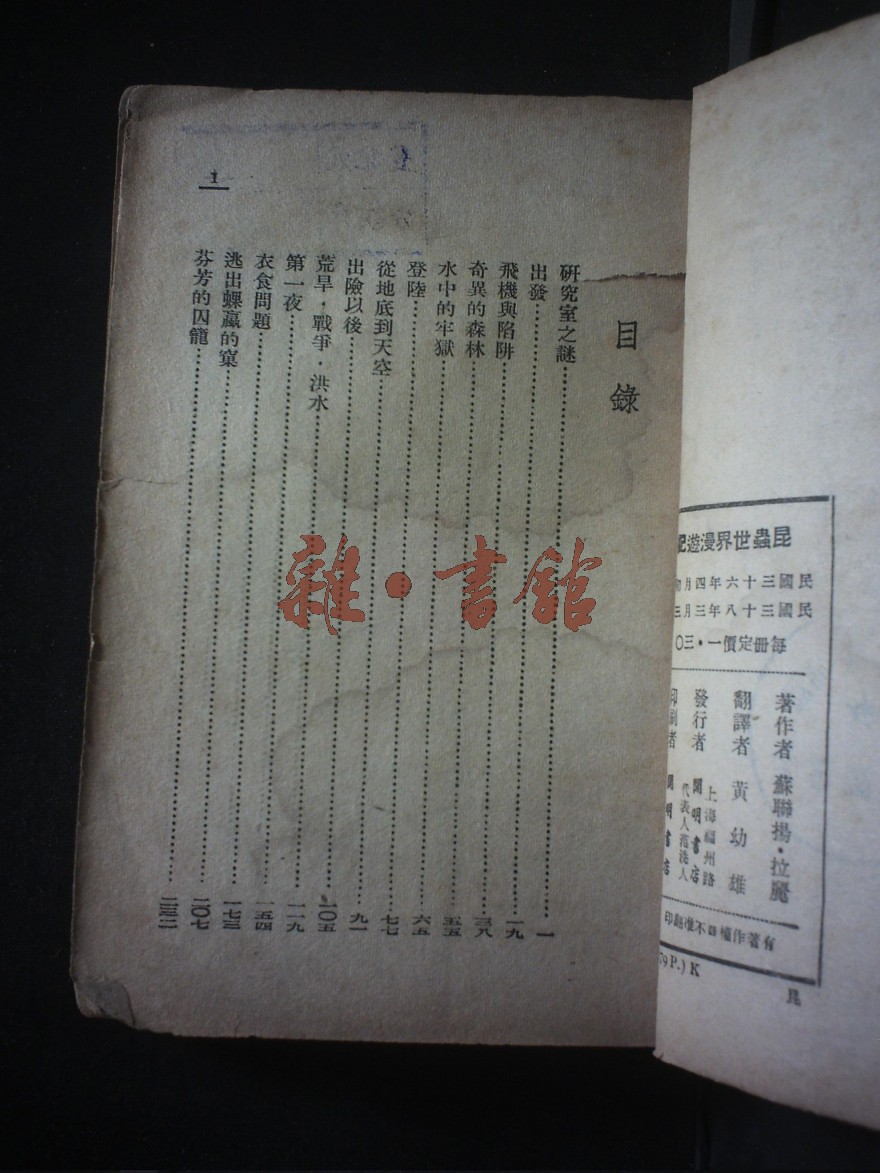 目錄
研究室之謎……一
出發……一九
飛機與陷阱……三八
奇異的森林……五五
水中的牢獄……六五
登陸……七七
從地底到天空……九一
出險以後……一〇五
荒旱·戰爭·洪水……一一九
第一夜……一五四
衣食問題……一七三
逃出蜾蠃的窠……二〇七
芬芳的囚籠……二三二
1
雜·書館
昆蟲世界漫遊記
民國三十六年四月
民國三十八年三月三
每冊定價一·三〇
著作者 蘇聯揚·拉麗
翻譯者 黃幼雄
發行者 開明書店
上海福州路
代表人范洗人
印刷者 開明書店
有著作權不准翻印
79 P.) K
昆